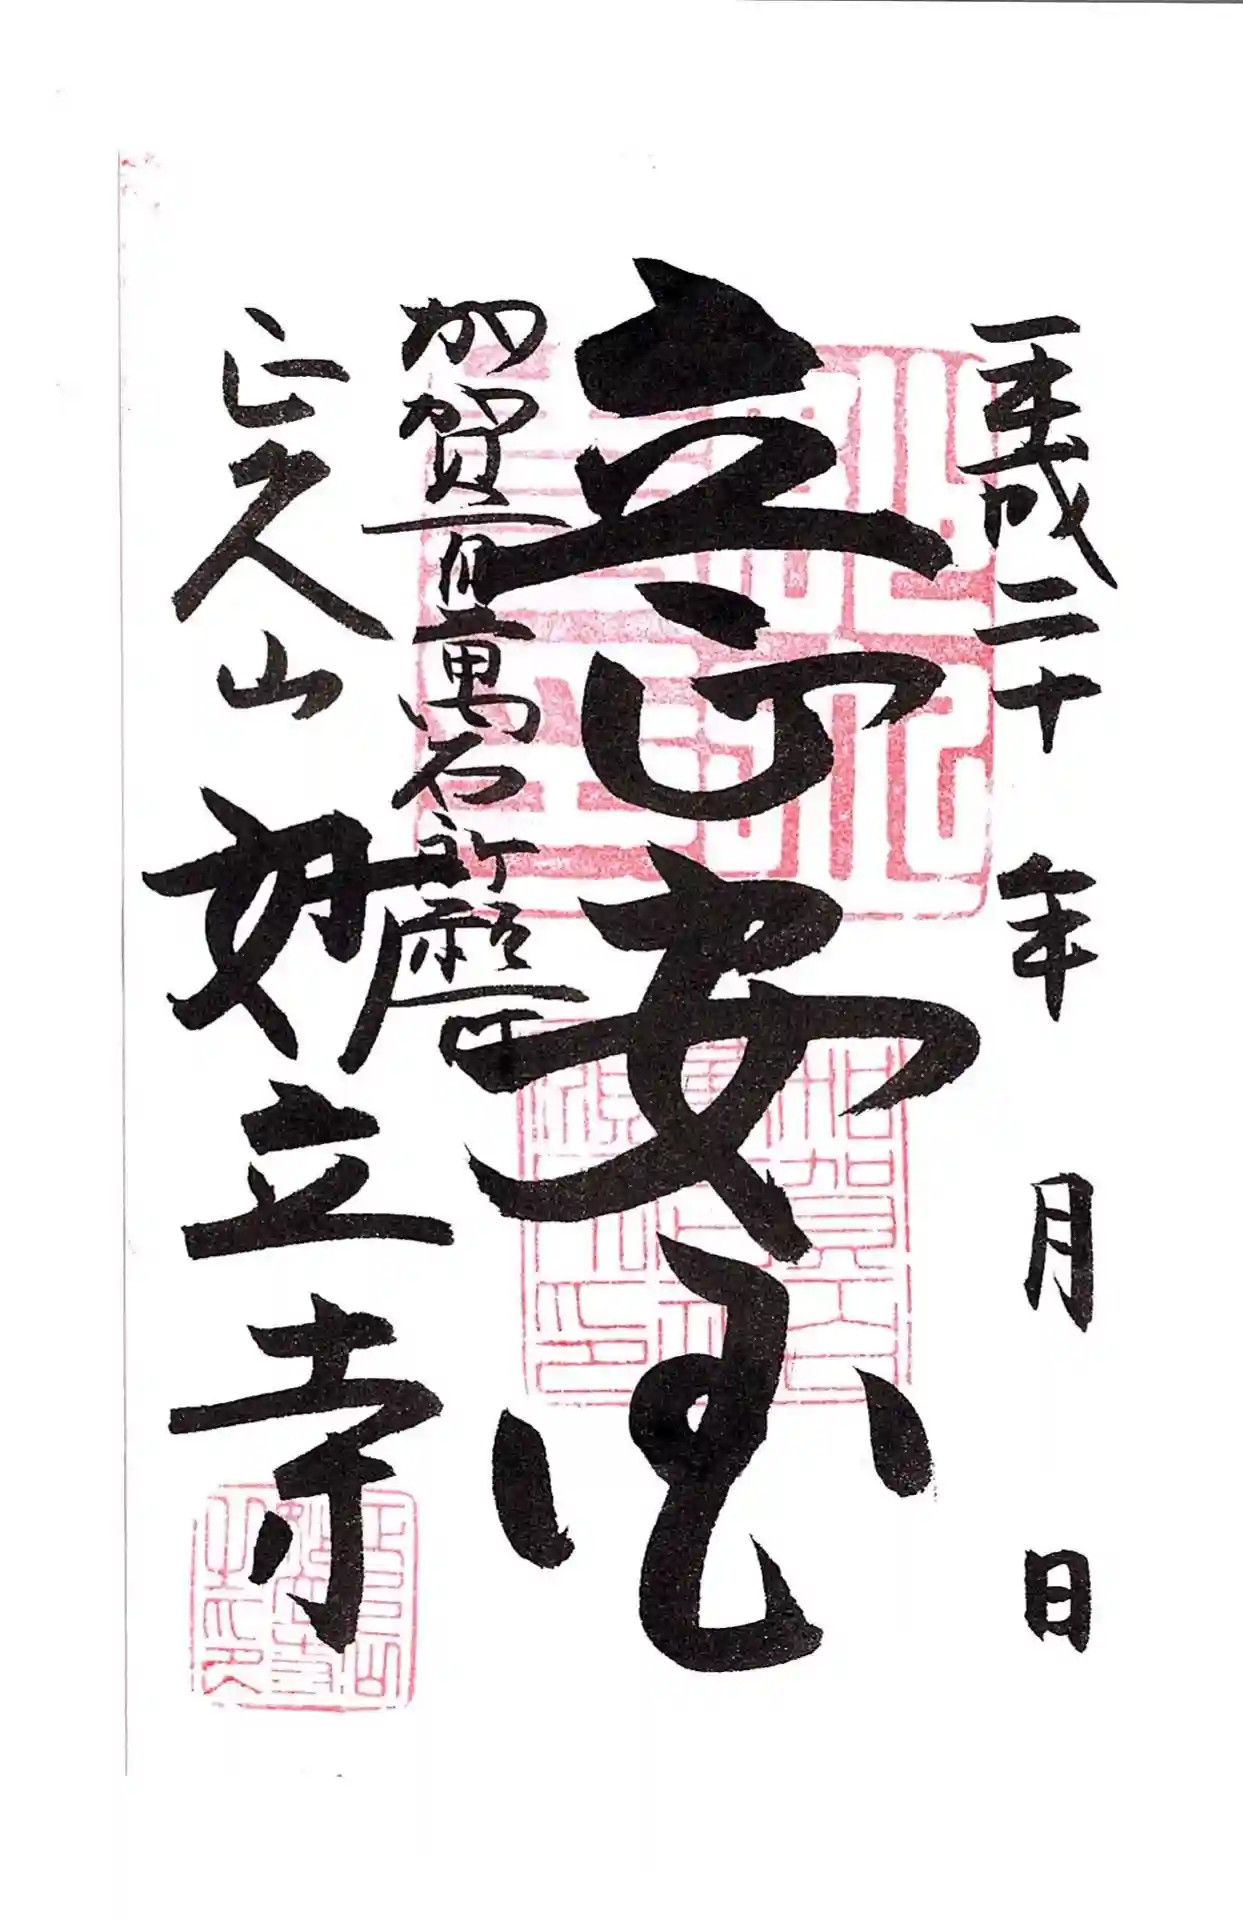 平成二十 年 月 日
立正安国
加賀百萬石祈願所
正久山 妙立寺